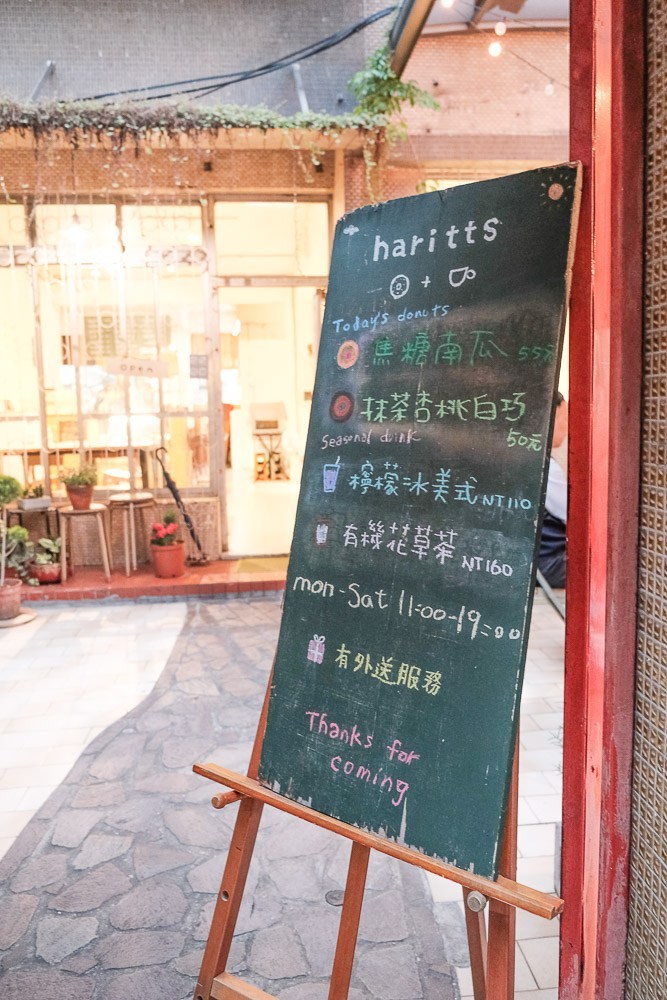 haritts
+
Today's donuts
焦糖南瓜 55元
抹茶杏桃白巧
50元
Seasonal drink
檸檬冰美式 NT110
有機花草茶 NT160
mon-Sat 11:00-19:00
有外送服務
Thanks for
coming
OPEN